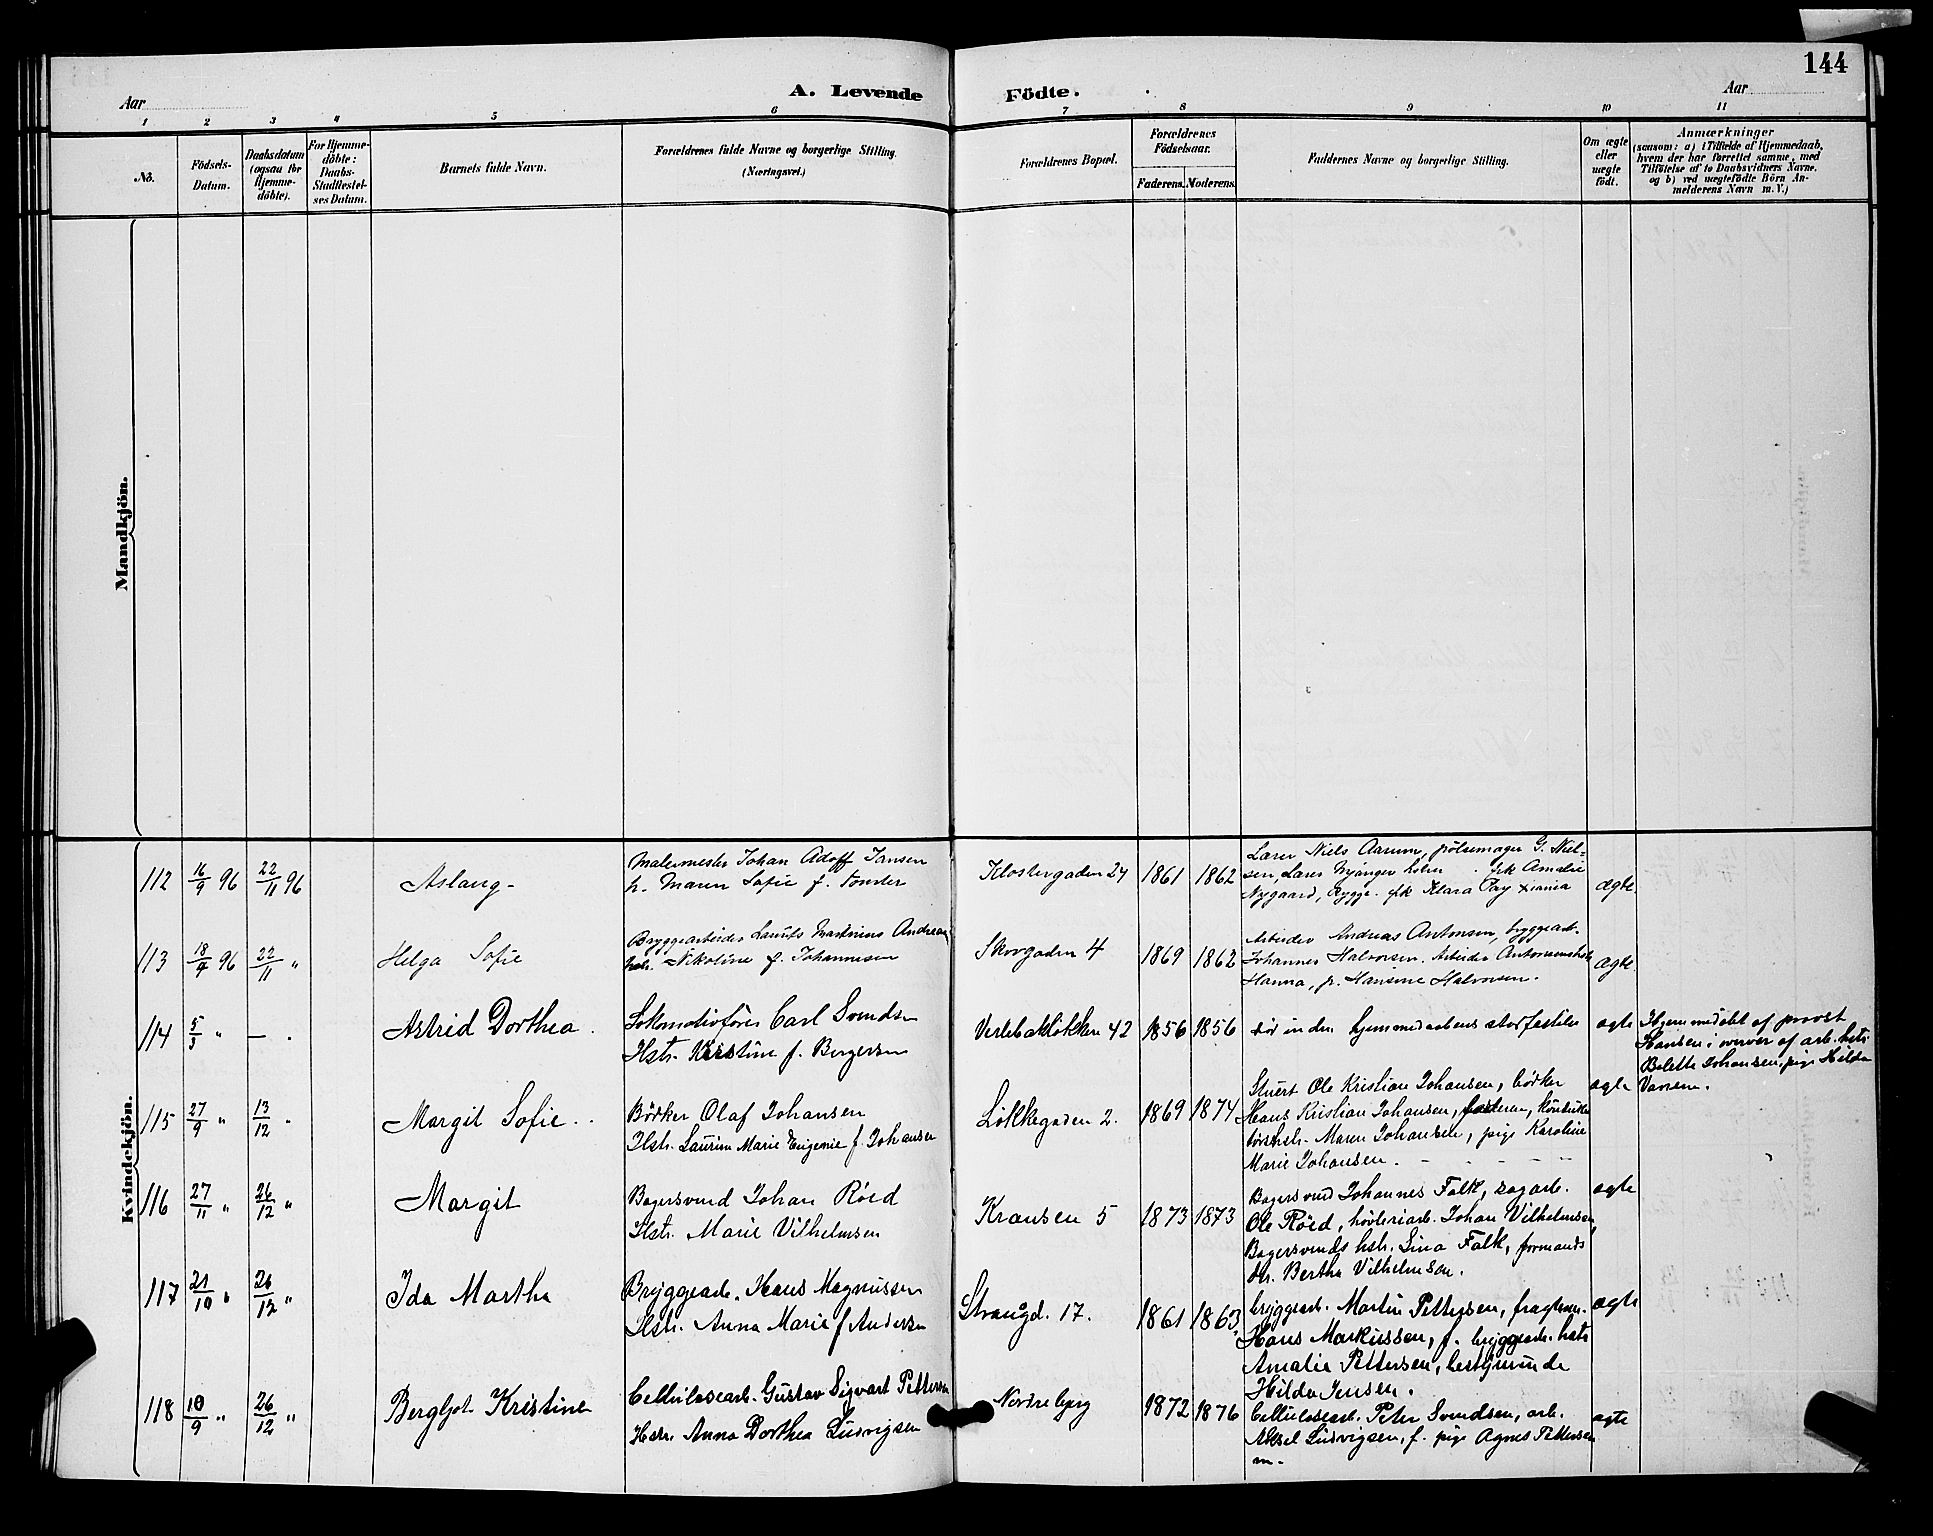 144
Aar
A. Levende
Födte.
Aar
1 2 3 4 5 6 7 8 9 10 11
No.
Födsels-
Datum.
Daabsdatum
(ogsaa for
Hjemme-
döbte).
For Hjemme-
döbte:
Daabs-
Stadfæstel-
ses Datum.
Barnets fulde Navn.
Forældrenes fulde Navne og borgerlige Stilling.
(Næringsvei.)
Forældrenes Bopæl.
Forældrenes
Födselsaar.
Faderens. Moderens.
Faddernes Navne og borgerlige Stilling.
Om ægte
eller
uægte
født.
Anmærkninger
(saasom: a) i Tilfælde af Hjemmedaab,
hvem der har forrettet samme, med
Tilföielse af to Daabsvidners Navne,
og b) ved uægtefödte Börn An-
melderens Navn m.V.)
Mandkjön.
Kvindekjön.
112 16/9 96 22/11 96 Aslaug
Malermester Johan Adolf Jansen
h. Maren Sofie f.
Klostergaden 24 1861 1862
Lærer Niels Aarum, pölsemager G. Niel-
sen, Lærer hstru frk Amalie
Nygaard, Rygge. frk Klara Xiania
ægte
113 18/9 96 22/11 " Helga Sofie
Bryggearbeider Laurits Martinius Andreas
hstr. Nikoline f. Johannesen
Skovgaden 4 1869 1862
Arbeider Andreas Antonsen, bryggearb.
Johannes Halvorsen. Arbeider Antonsens hstr
Hanna, p. Hansine Halvorsen.
ægte
114 5/3 " — . Astrid Dorthea.
Lokomotivförer Carl Svendsen
Hstr. Kristine f. Bergersen
Verlebaklökken 42 1856 1856
hjemmedaabens stadfestelse
ægte
Hjemmedöbt af provst
Hansen i overvær af arb. hstr.
Belette Johansen, pige Hilda
115 27/9 " 13/12 " Margit Sofie.
Bödker Olaf Johansen
Hstr. Laurine Marie Eugenie f. Johansen
Lökkegaden 2. 1869 1874
Stuert Ole Kristian Johansen, bödker
Hans Kristian Johansen, faderen,
Maren Johansen, pige Karoline
Marie Johansen.
ægte
116 27/11 " 26/12 " Margit
Bagersvend Johan Röed
Hstr. Marie Vilhelmsen
Kransen 5 1873 1873
Bagersvend Johannes Falk, sagarb.
Ole Röed, hövleriarb. Johan Vilhelmsen,
Bagersvends hstr. Lina Falk, formands
dtr. Bertha Vilhelmsen.
ægte
117 21/10 " 26/12 " Ida Martha
Bryggearb. Hans Magnussen
Hstr. Anna Marie f Andersen
Strangd. 17. 1861 1863
bryggearb. Martin Pettersen,
Hans Markussen, f. bryggearb. hstr
Amalie Pettersen, bestyrerinde
Hilda Jensen.
ægte
118 10/9 " 26/12 " Bergljot Kristine
Cellulosearb. Gustav Sigvart Pettersen
Hstr. Anna Dorthea Ludvigsen
Nordre bjerg 1872 1876
Cellulosearb. Peter Svendsen, arb.
Aksel Ludvigsen, f. pige Agnes Pettersen
m.
ægte